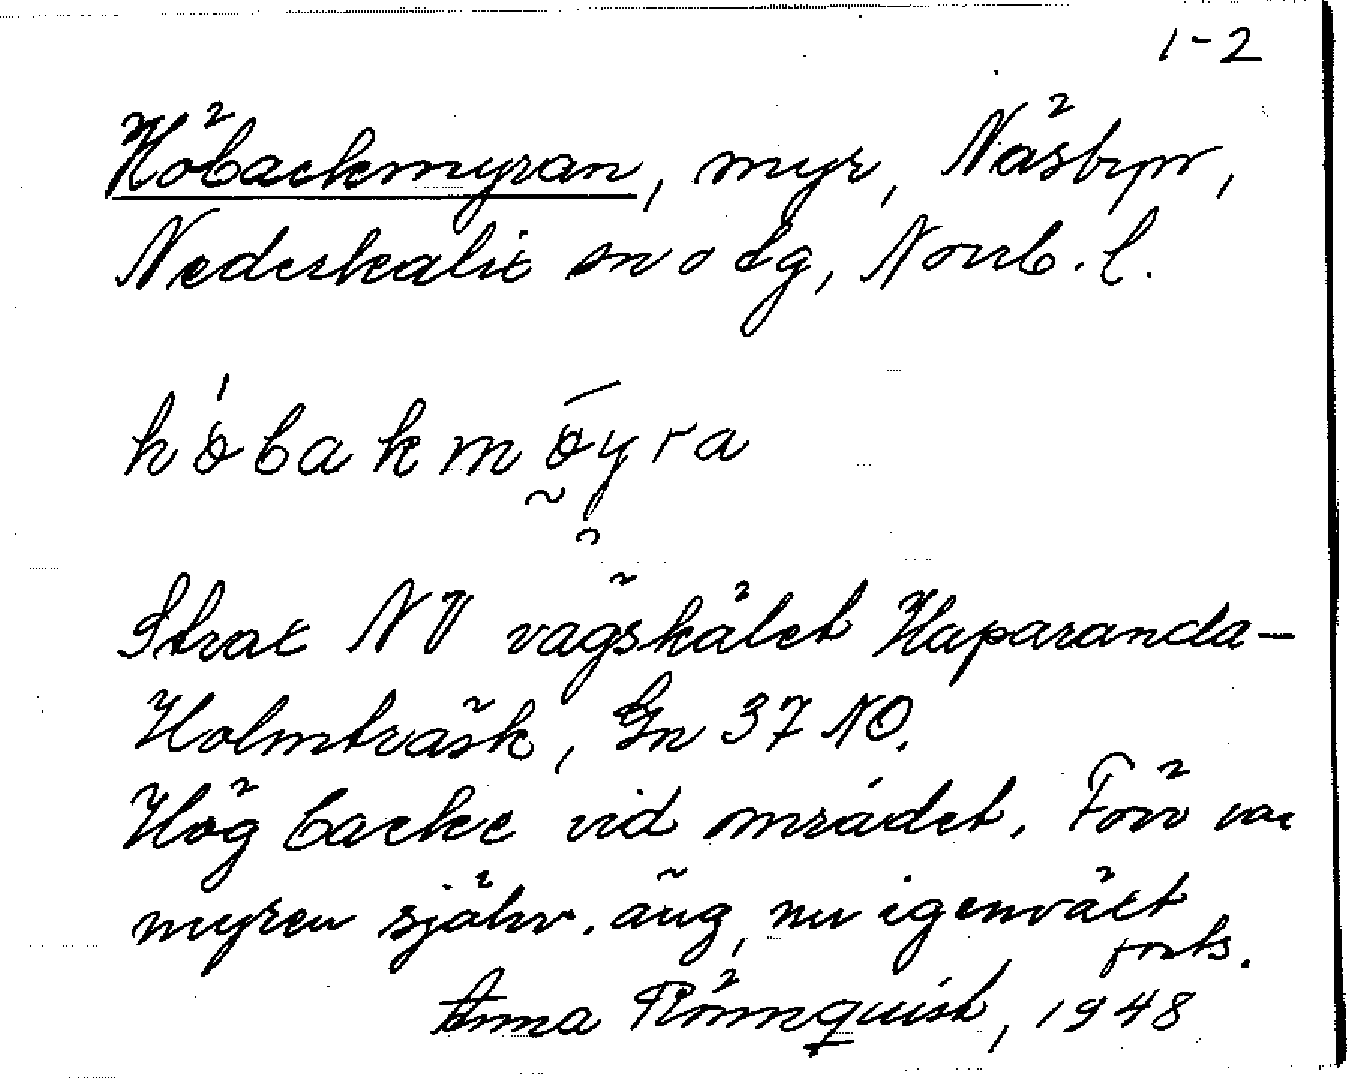 1-2
Höbackmyran, myr, Näsbyn,
Nederkalix sn o tg, Norrb. l.
höbakmöyra
Strax NV vägskälet Haparanda-
Holmträsk, Gn 37 NO.
Hög backe vid området. Förr var
myren självr. äng, nu igenväxt
forts.
Anna Rönnquist, 1948